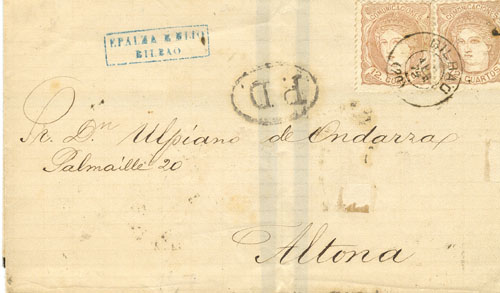 EPALZA É HIJO
BILBAO
12 CUARTOS
BILBAO
P.D.
Sr. Dn Ulpiano de Ondarra
Palmaille 20
Altona